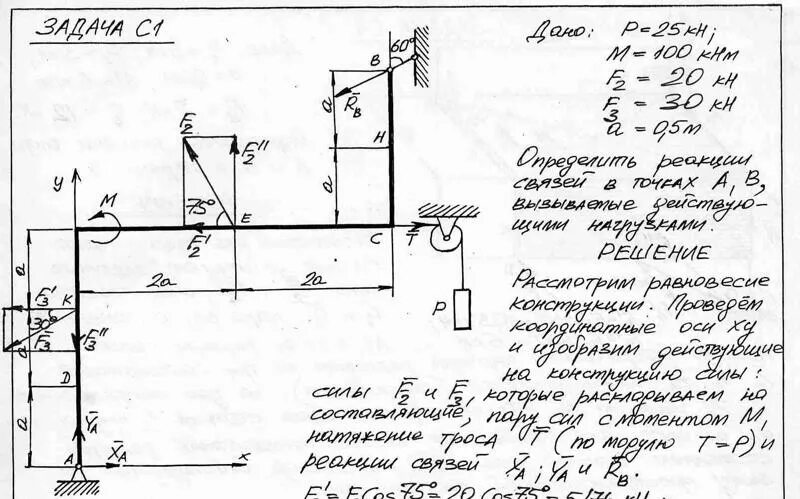 ЗАДАЧА С1
Дано: P = 25 кН;
M = 100 кНм
F2 = 20 кН
F3 = 30 кН
a = 0,5м
Определить реакции
связей в точках А, В,
вызываемые действую-
щими нагрузками.
РЕШЕНИЕ
Рассмотрим равновесие
конструкции. Проведём
координатные оси xy
и изобразим действующие
на конструкцию силы:
силы F̄2 и F̄3, которые раскладываем на
составляющие, пару сил с моментом M,
натяжение троса T̄ (по модулю T = P) и
реакции связей X̄A; ȲA и R̄B.
60°
B
R̄B
a
H
a
F̄2
F̄2''
75°
y
M
E
F̄2'
C
T̄
2a
2a
P
a
F̄3'
K
30°
F̄3
F̄3''
a
D
a
ȲA
A
X̄A
x